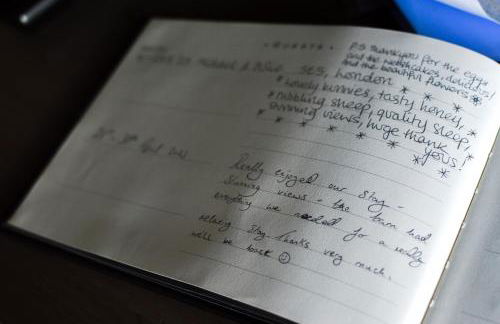 • GUESTS •
P.S Thankyou for the eggs
and the welshcakes, delicious!
and the beautiful flowers *
SES, London
* Lovely bunnies, tasty honey, *
* nibbling sheep, quality sleep,
stunning views, huge thank
yous! *
Really enjoyed our stay -
Stunning views - the barn had
everything we needed for a really
relaxing stay. Thanks very much,
will be back ☺